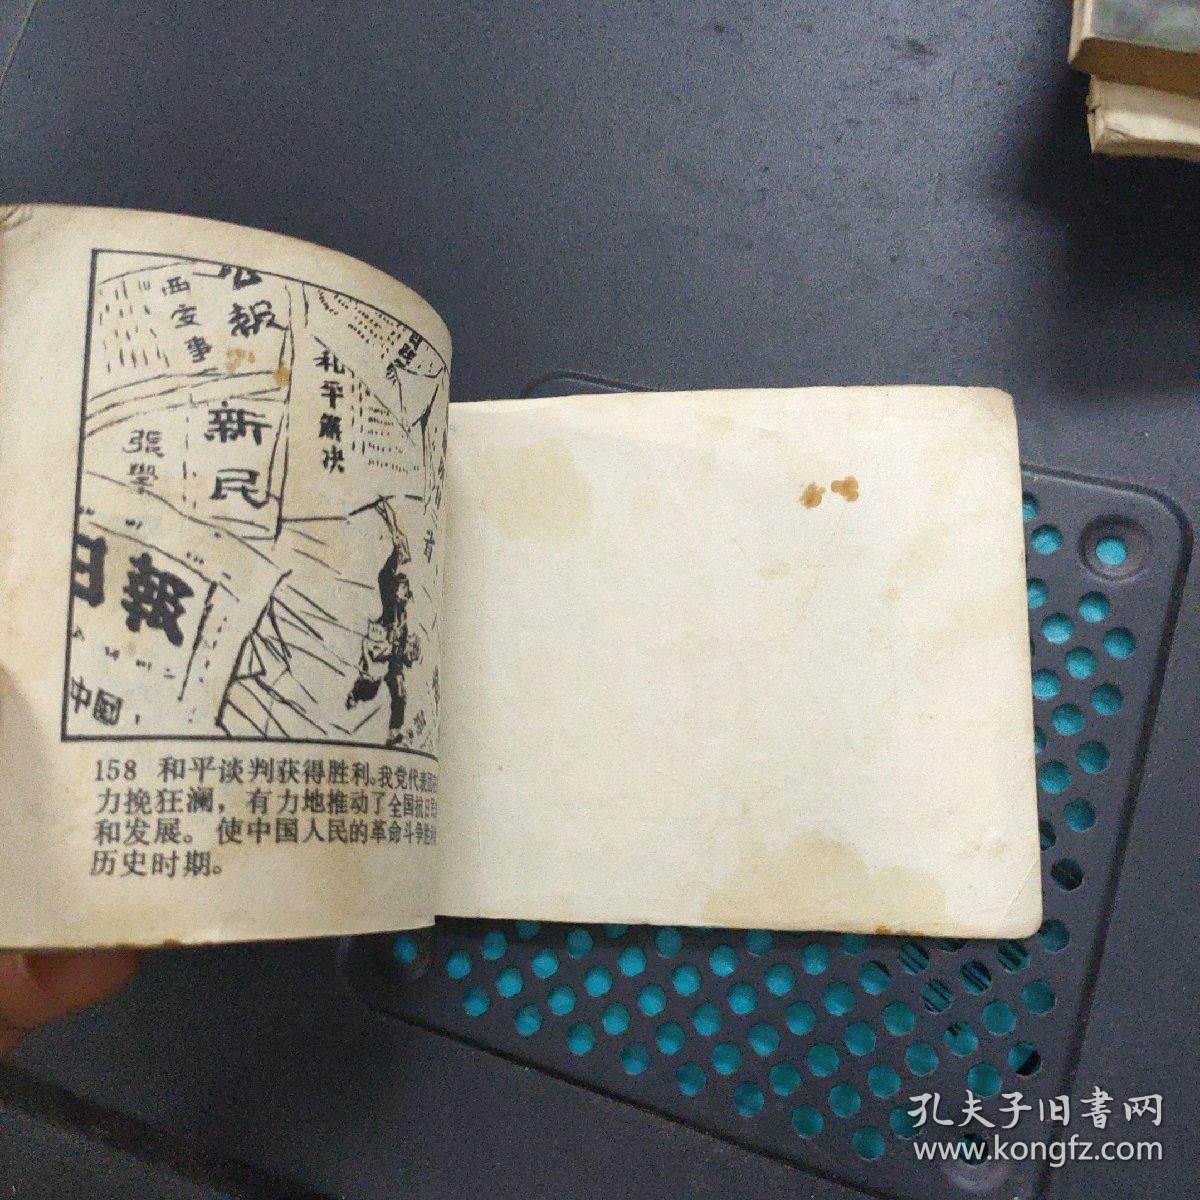 报
西安事
和平解决
新民
張學
日
报
中国
首
158 和平谈判获得胜利。我党代表团
力挽狂澜，有力地推动了全国抗日
和发展。使中国人民的革命斗争
历史时期。
孔夫子旧書网
www.kongfz.com